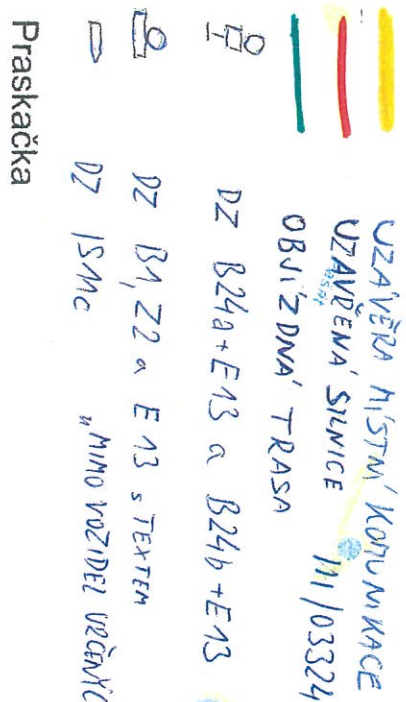 UZÁVĚRA MÍSTNÍ KOMUNIKACE
UZAVŘENÁ SILNICE III/03324
OBJÍZDNÁ TRASA
DZ B24a+E13 a B24b+E13
DZ B1, Z2 a E13 s TEXTEM
„MIMO VOZIDEL URČENÝC
DZ IS11c
Praskačka